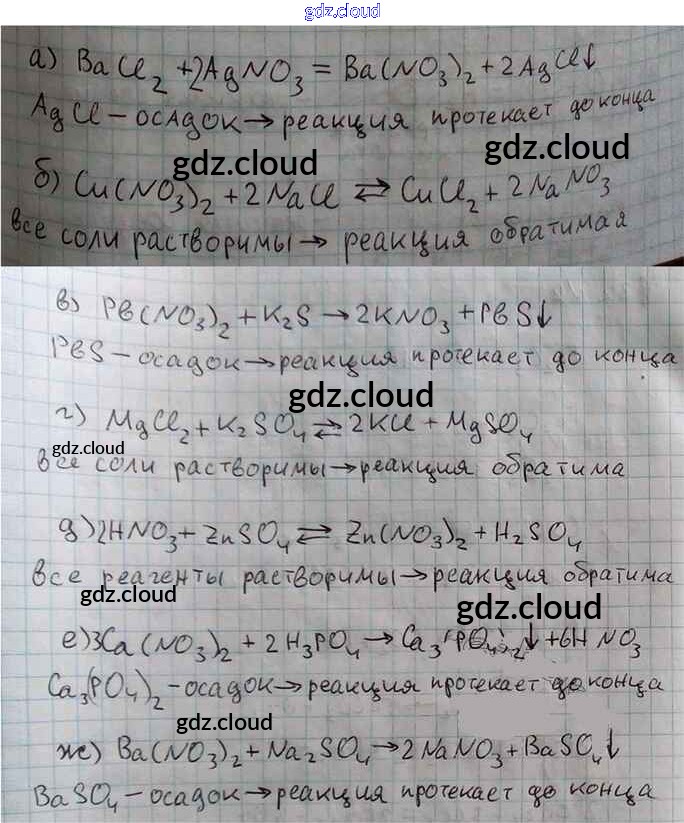 gdz.cloud
а) BaCl₂ + 2AgNO₃ = Ba(NO₃)₂ + 2AgCl↓
AgCl – осадок → реакция протекает до конца
gdz.cloud
gdz.cloud
б) Cu(NO₃)₂ + 2NaCl ⇄ CuCl₂ + 2NaNO₃
все соли растворимы → реакция обратимая
в) Pb(NO₃)₂ + K₂S → 2KNO₃ + PbS↓
PbS – осадок → реакция протекает до конца
gdz.cloud
г) MgCl₂ + K₂SO₄ ⇄ 2KCl + MgSO₄
gdz.cloud
все соли растворимы → реакция обратима
д) 2HNO₃ + ZnSO₄ ⇄ Zn(NO₃)₂ + H₂SO₄
все реагенты растворимы → реакция обратима
gdz.cloud
gdz.cloud
е) 3Ca(NO₃)₂ + 2H₃PO₄ → Ca₃(PO₄)₂↓ + 6HNO₃
Ca₃(PO₄)₂ – осадок → реакция протекает до конца
gdz.cloud
ж) Ba(NO₃)₂ + Na₂SO₄ → 2NaNO₃ + BaSO₄↓
BaSO₄ – осадок → реакция протекает до конца